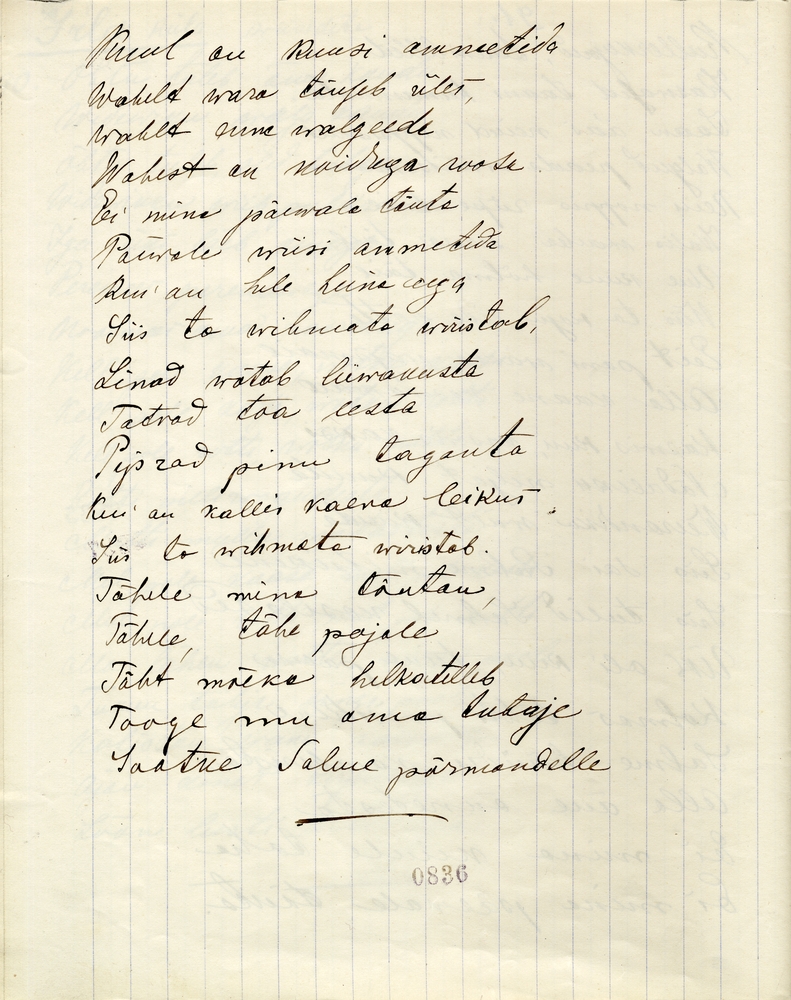 Kuul on kuusi ammetida
Wahelt wara tõuseb üles,
wahelt enne walgeede
Wahest on koiduga koosa
Ei mina päewale tõuta
Päewale wiisi ammetida
Kui on hele heina aeg
Siis ta wihmata wiristab,
Linad wõtab liiwanusta
Tatrad toa eesta
Pipzad pinu taganta
Kui on kallis kaera leikus.
Siis ta wihmata wiristab.
Tähele mina tõutan,
Tähele, tähe pojale
Täht mõeka helkatelleb
Tooge mu oma tutaje
Saatke Salme pärmandelle
0836